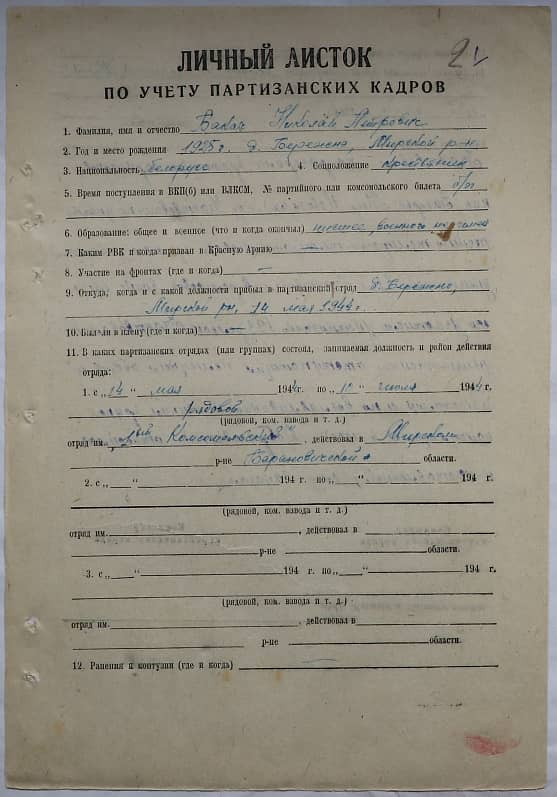 21
ЛИЧНЫЙ ЛИСТОК
ПО УЧЕТУ ПАРТИЗАНСКИХ КАДРОВ
1. Фамилия, имя и отчество Бакач Николай Петрович
2. Год и место рождения 1925 г. д. Бережно, Мирской р-н.
3. Национальность белорус 4. Соцположение крестьянин
5. Время поступления в ВКП(б) или ВЛКСМ, № партийного или комсомольского билета б/п
6. Образование: общее и военное (что и когда окончил) низшее, военного
7. Каким РВК и когда призван в Красную Армию —
8. Участие на фронтах (где и когда) —
9. Откуда, когда и с какой должности прибыл в партизанский отряд д. Бережно,
Мирской рн, 14 мая 1944 г.
10. Был ли в плену (где и когда) —
11. В каких партизанских отрядах (или группах) состоял, занимаемая должность и район действия
отряда:
1. с „14 “ мая 1944 г. по „10 “ июля 1944 г.
рядовой
(рядовой, ком. взвода и т. д.)
отряд им. Комсомольский“, действовал в Мирском
р-не Барановичской области.
2. с „ “ 194 г. по „ “ 194 г.
(рядовой, ком. взвода и т. д.)
отряд им. , действовал в
р-не области.
3. с „ “ 194 г. по „ “ 194 г.
(рядовой, ком. взвода и т. д.)
отряд им. , действовал в
р-не области.
12. Ранения и контузии (где и когда) —